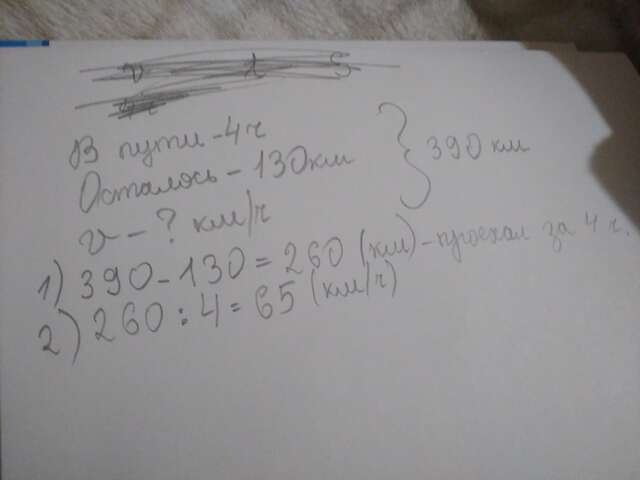 v t S
В пути - 4 ч
Осталось - 130 км } 390 км
v - ? км/ч
1) 390 - 130 = 260 (км) - проехал за 4 ч.
2) 260 : 4 = 65 (км/ч)